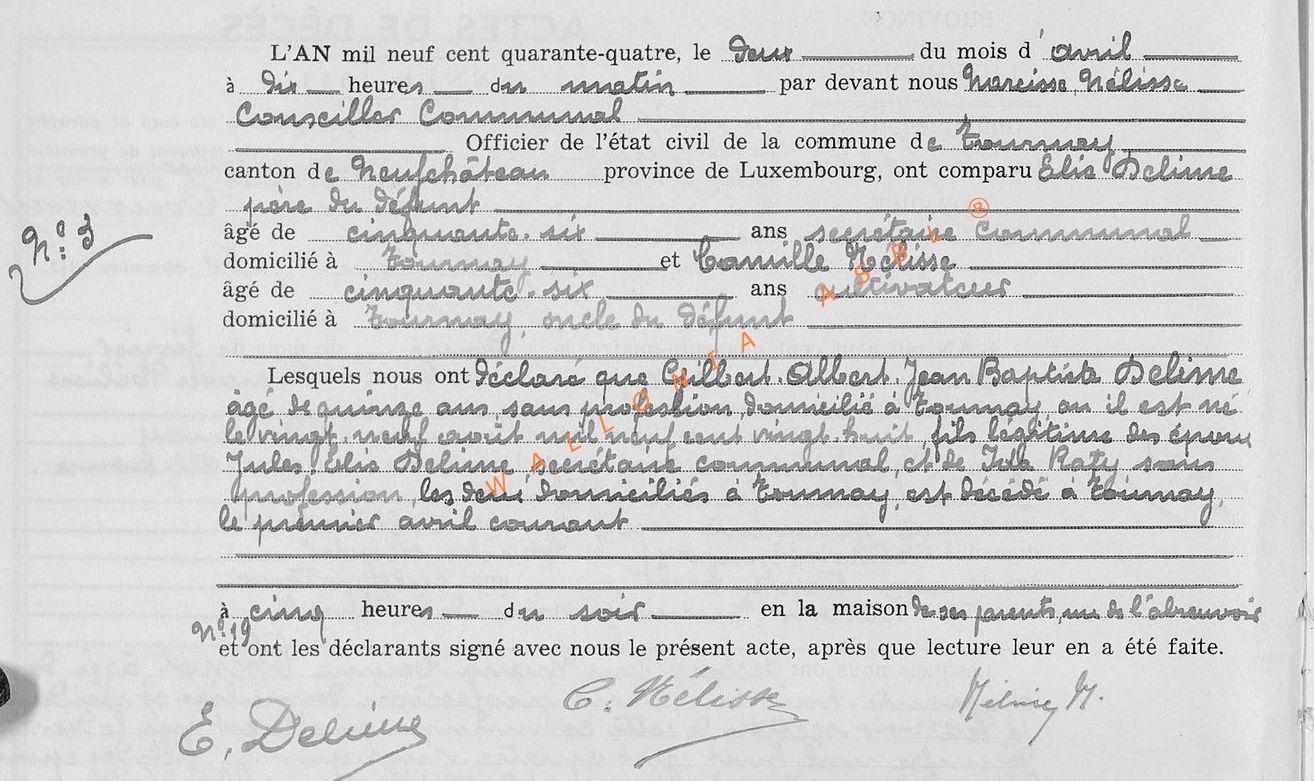 L'AN mil neuf cent quarante-quatre, le deux du mois d'avril
à dix heures du matin par devant nous Narcisse Mélisse
Conseiller Communal
Officier de l'état civil de la commune de Tournay
canton de Neufchâteau province de Luxembourg, ont comparu Elie Delime
père du défunt
N° 3
âgé de cinquante-six ans secrétaire Communal
domicilié à Tournay et Camille Mélisse
âgé de cinquante-six ans cultivateur
domicilié à Tournay, oncle du défunt
Lesquels nous ont déclaré que Gilbert, Albert, Jean Baptiste Delime
âgé de quinze ans, sans profession domicilié à Tournay, ou il est né
le vingt-neuf août mil neuf cent vingt-huit, fils légitime des époux
Jules, Elie Delime secrétaire communal, et de Ida Raty sans
profession, les deux domiciliés à Tournay, est décédé à Tournay,
le premier avril courant
à cinq heures du soir en la maison de ses parents, rue de l'abreuvoir
n° 19
et ont les déclarants signé avec nous le présent acte, après que lecture leur en a été faite.
E. Delime C. Mélisse M.
WALLONIA ASBL ®